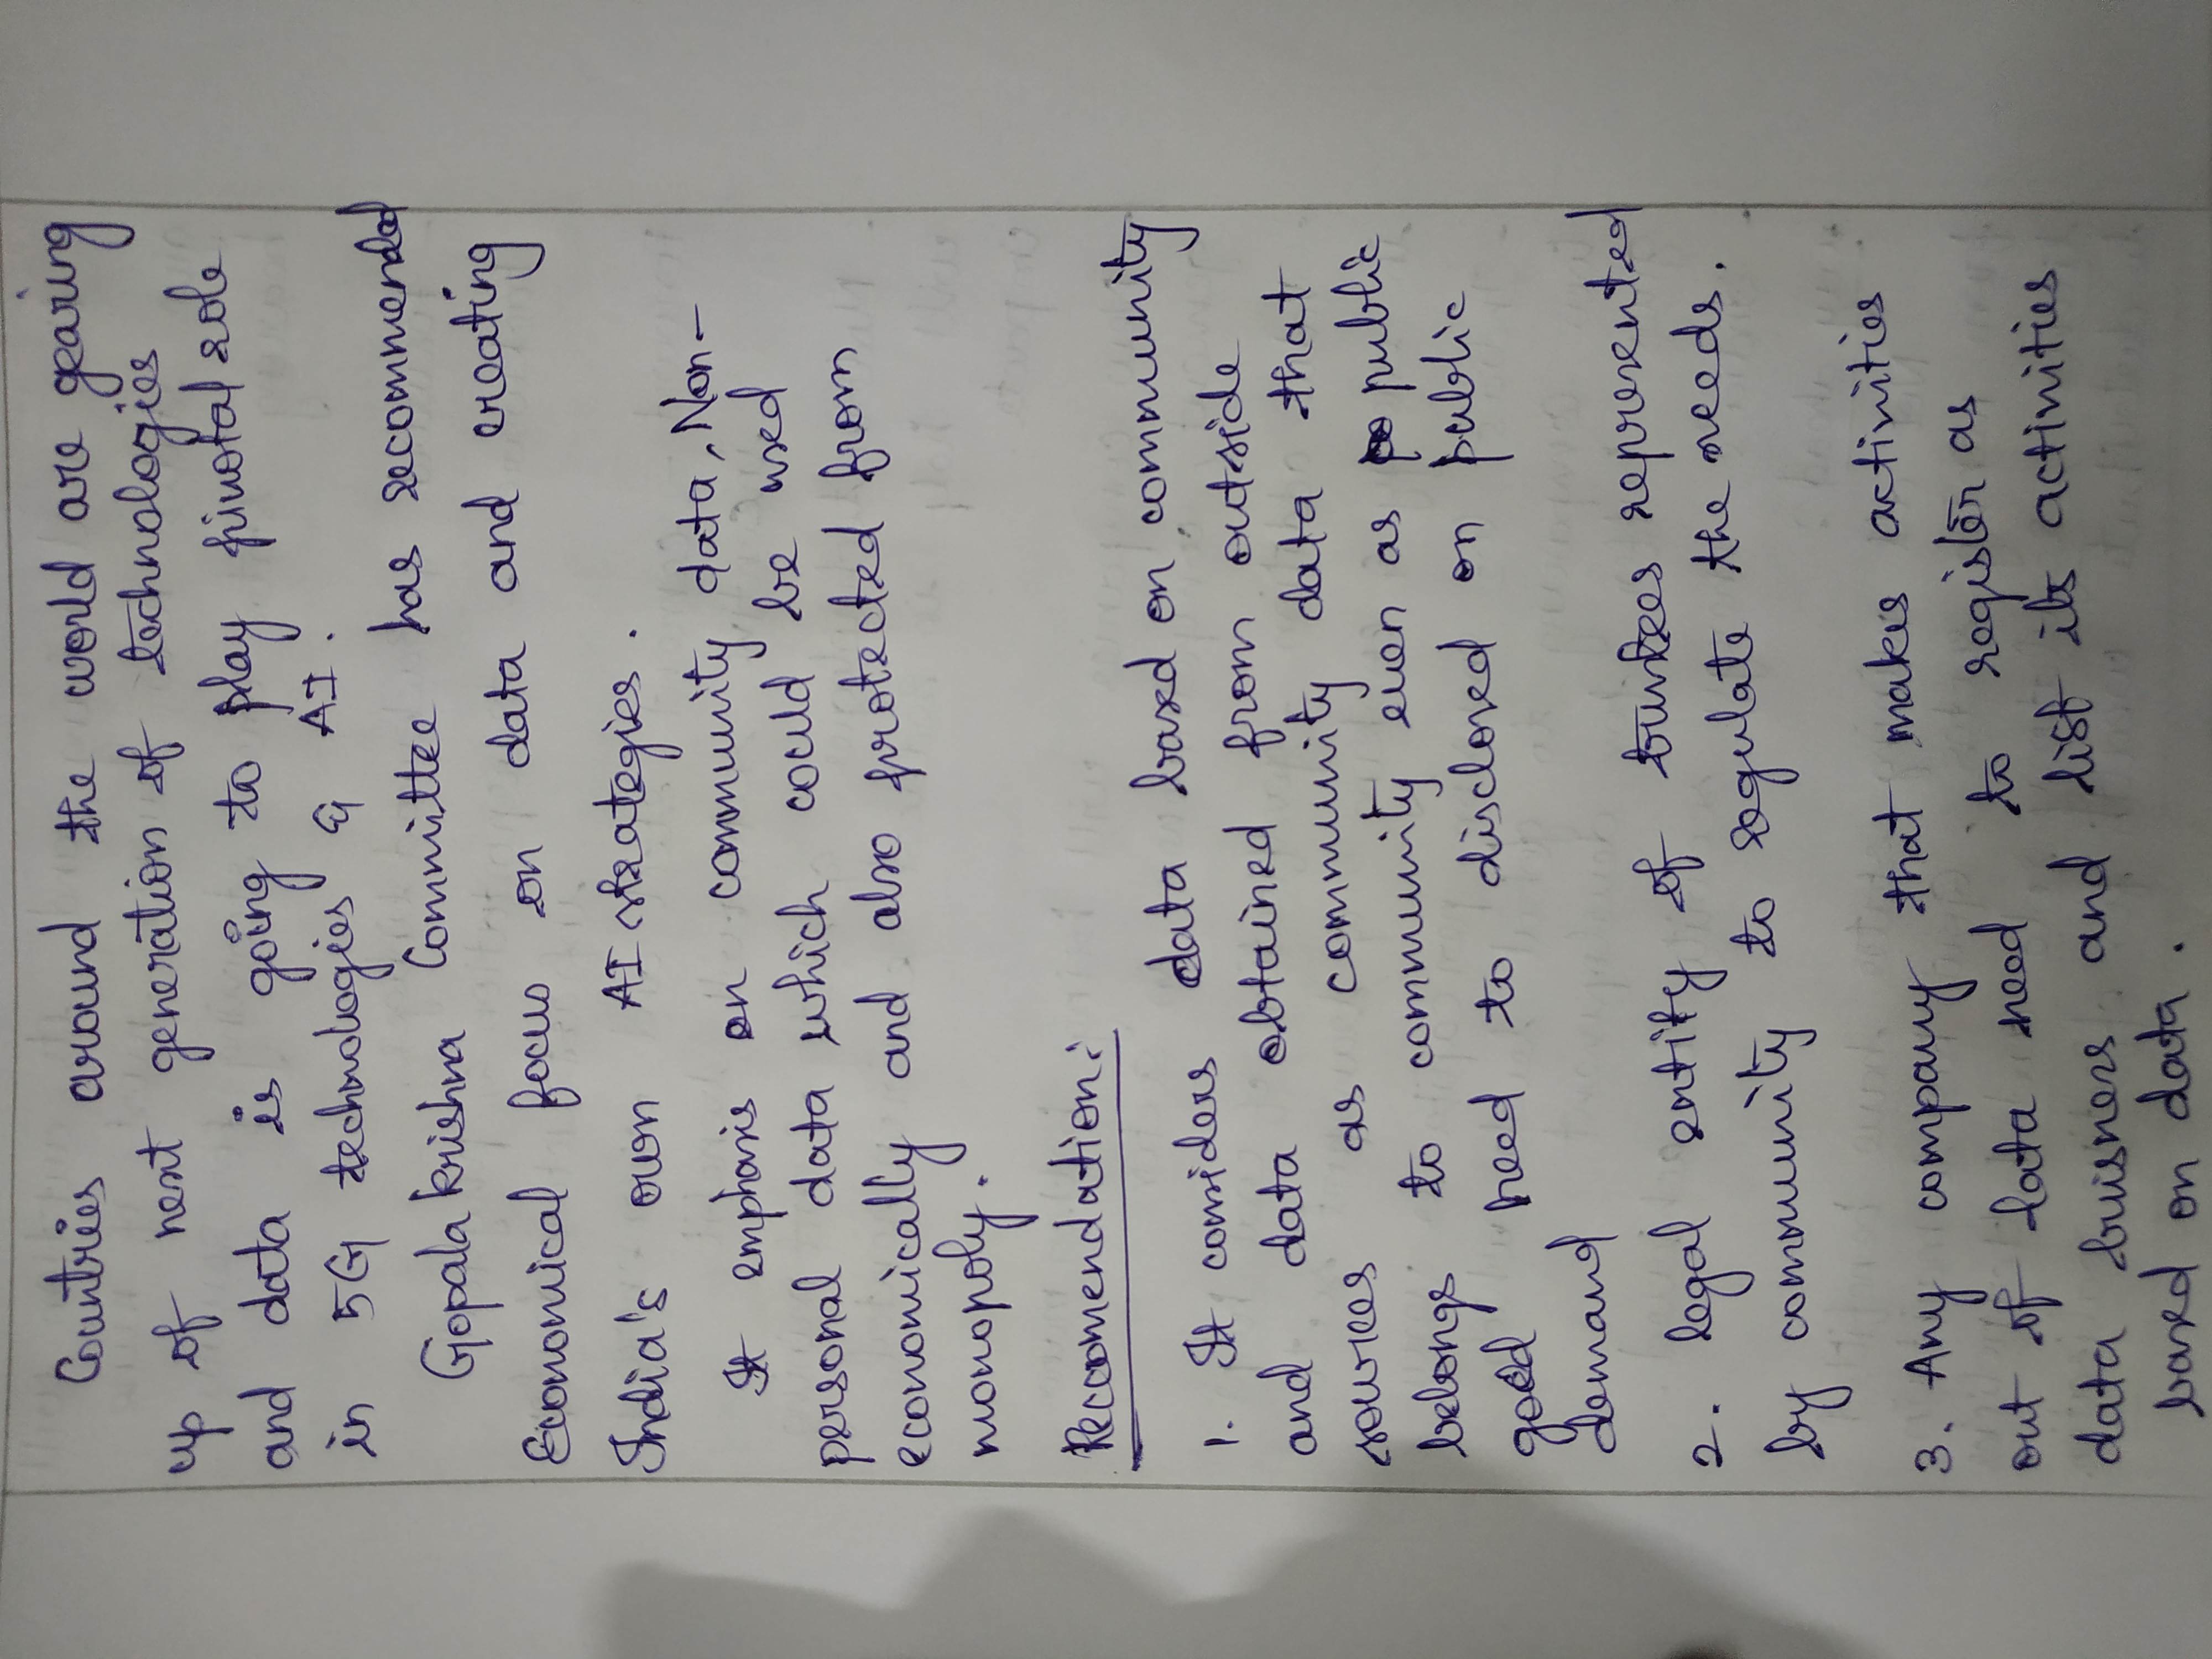 Countries around the world are gearing
up of next generation of technologies
and data is going to play pivotal role
in 5G technologies & AI.
Gopala krishna Committee has recommended
Economical focus on data and creating
India's own AI strategies.
It emphasis on community data, Non-
personal data which could be used
economically and also protected from
monopoly.
Recoomendation:
1. It considers data based on community
and data obtained from outside
sources as community data that
belongs to community even as public
good need to disclosed on public
demand
2. legal entity of trustees represented
by community to regulate the needs.
3. Any company that makes activities
out of data need to register as
data buisness and list its activities
based on data.